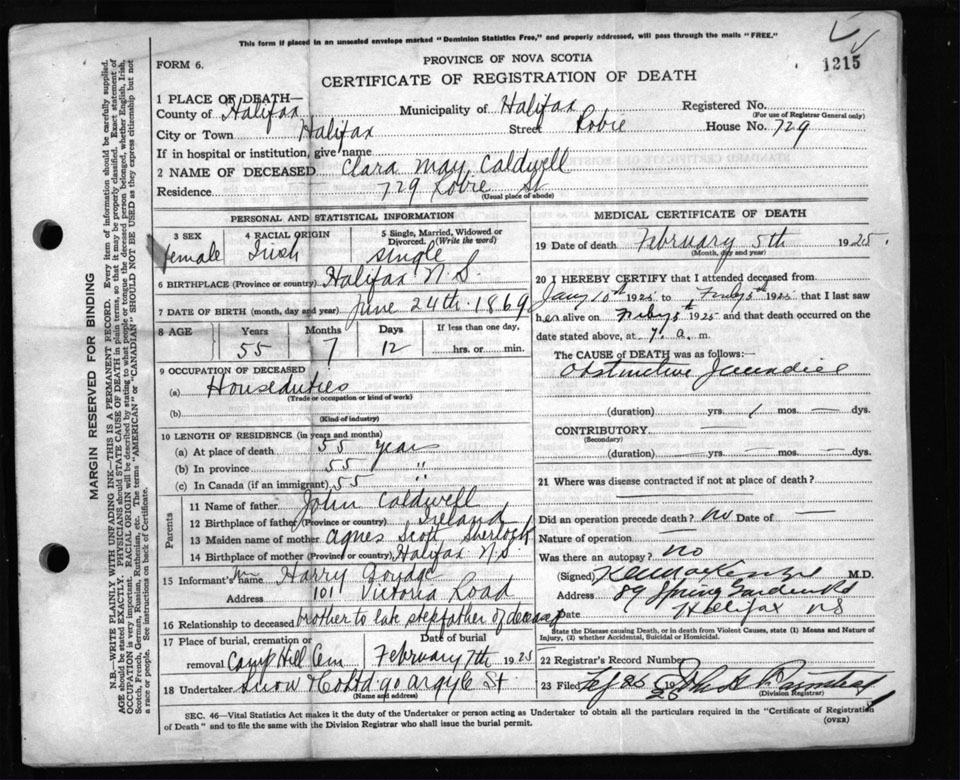 This form if placed in an unsealed envelope marked "Dominion Statistics Free," and properly addressed, will pass through the mails "FREE."
1215
FORM 6.
PROVINCE OF NOVA SCOTIA
CERTIFICATE OF REGISTRATION OF DEATH
1 PLACE OF DEATH—
County of Halifax Municipality of Halifax Registered No.
(For use of Registrar General only)
City or Town Halifax Street Robie House No. 729
If in hospital or institution, give name
2 NAME OF DECEASED Clara May Caldwell
Residence 729 Robie St
(Usual place of abode)
PERSONAL AND STATISTICAL INFORMATION
3 SEX 4 RACIAL ORIGIN 5 Single, Married, Widowed or Divorced. (Write the word)
Female Irish Single
6 BIRTHPLACE (Province or country) Halifax N.S.
7 DATE OF BIRTH (month, day and year) June 24th 1869
8 AGE Years Months Days If less than one day,
55 7 12 hrs. or min.
9 OCCUPATION OF DECEASED
(a) Houseduties
(Trade or occupation or kind of work)
(b)
(Kind of industry)
10 LENGTH OF RESIDENCE (in years and months)
(a) At place of death 55 years
(b) In province 55 "
(c) In Canada (if an immigrant) 55 "
Parents
11 Name of father John Caldwell
12 Birthplace of father (Province or country) Ireland
13 Maiden name of mother Agnes Scott Sherlock
14 Birthplace of mother (Province or country) Halifax N.S.
15 Informant's name Harry
Address 101 Victoria Road
16 Relationship to deceased brother to late stepfather of deceased
17 Place of burial, cremation or removal Camp Hill Cem
Date of burial
February 7th 1925
18 Undertaker Snow & Co Ltd 90 Argyle St
(Name and address)
MEDICAL CERTIFICATE OF DEATH
19 Date of death February 5th 1925.
(Month, day and year)
20 I HEREBY CERTIFY that I attended deceased from
Jany 10th 1925 to Feby 5th 1925 that I last saw
her alive on Feby 5 1925 and that death occurred on the
date stated above, at 7. a. m.
The CAUSE OF DEATH was as follows:—
Obstructive Jaundice
(duration) — yrs. 1 mos. — dys.
CONTRIBUTORY —
(Secondary)
(duration) — yrs. — mos. — dys.
21 Where was disease contracted if not at place of death?
Did an operation precede death? no Date of —
Nature of operation —
Was there an autopsy? no
(Signed) M.D.
Address 89 Spring Garden Rd
Date Halifax NS
State the Disease causing Death, or in death from Violent Causes, state (1) Means and Nature of Injury, (3) whether Accidental, Suicidal or Homicidal.
22 Registrar's Record Number
23 Filed 19 John
(Division Registrar)
SEC. 46—Vital Statistics Act makes it the duty of the Undertaker or person acting as Undertaker to obtain all the particulars required in the "Certificate of Registration
of Death" and to file the same with the Division Registrar who shall issue the burial permit.
(OVER)
MARGIN RESERVED FOR BINDING
N.B.—WRITE PLAINLY WITH UNFADING INK—THIS IS A PERMANENT RECORD. Every item of information should be carefully supplied.
AGE should be stated EXACTLY. PHYSICIANS should STATE CAUSE OF DEATH in plain terms, so that it may be properly classified. Exact statement of
OCCUPATION is very important. RACIAL ORIGIN will be described by stating to what people or tongue the deceased person belonged, whether English, Irish,
Scotch, French, German, Russian, Ruthenian, etc. The terms "AMERICAN" or "CANADIAN" SHOULD NOT BE USED as they express citizenship but not
a race or people. See instructions on back of Certificate.